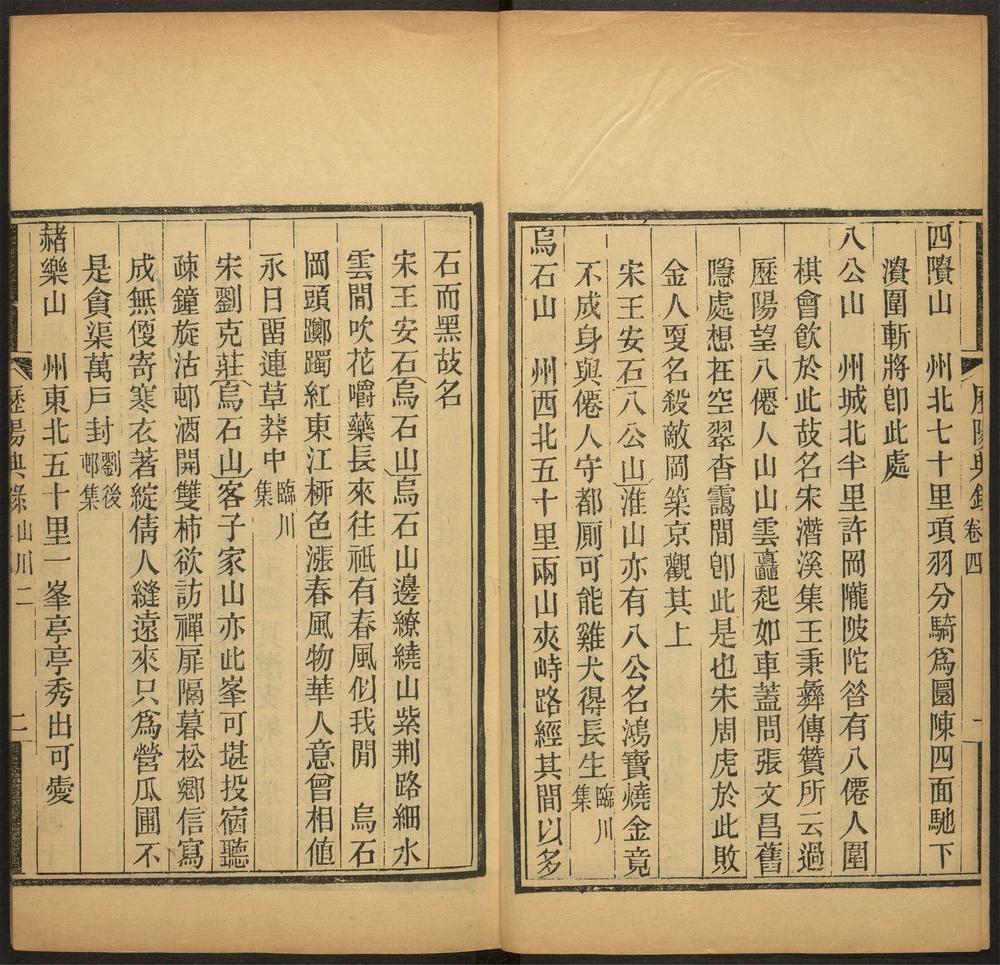 歷陽典錄 卷四 一
四隤山 州北七十里項羽分騎爲圜陳四面馳下
潰圍斬將卽此處
八公山 州城北半里許岡隴陂陀昝有八僊人圍
棋會飮於此故名宋濳溪集王秉彝傳贊所云過
歷陽望八僊人山山雲矗起如車蓋問張文昌舊
隱處想在空翠杳靄間卽此是也宋周虎於此敗
金人更名殺敵岡築京觀其上
宋王安石八公山淮山亦有八公名鴻寶燒金竟
不成身與僊人守都厠可能雞犬得長生臨川集
烏石山 州西北五十里兩山夾峙路經其間以多
石而黑故名
宋王安石烏石山烏石山邊繚繞山紫荆路細水
雲間吹花嚼蘂長來往祇有春風似我閒 烏石
岡頭躑躅紅東江柳色漲春風物華人意曾相値
永日畱連草莽中臨川集
宋劉克莊烏石山客子家山亦此峯可堪投宿聽
疎鐘旋沽邨酒開雙柿欲訪禪扉隔暮松鄉信寫
成無便寄寒衣著綻倩人縫遠來只爲營瓜圃不
是貪渠萬戶封劉後邨集
赭樂山 州東北五十里一峯亭亭秀出可愛
歷陽典錄 山川二 二